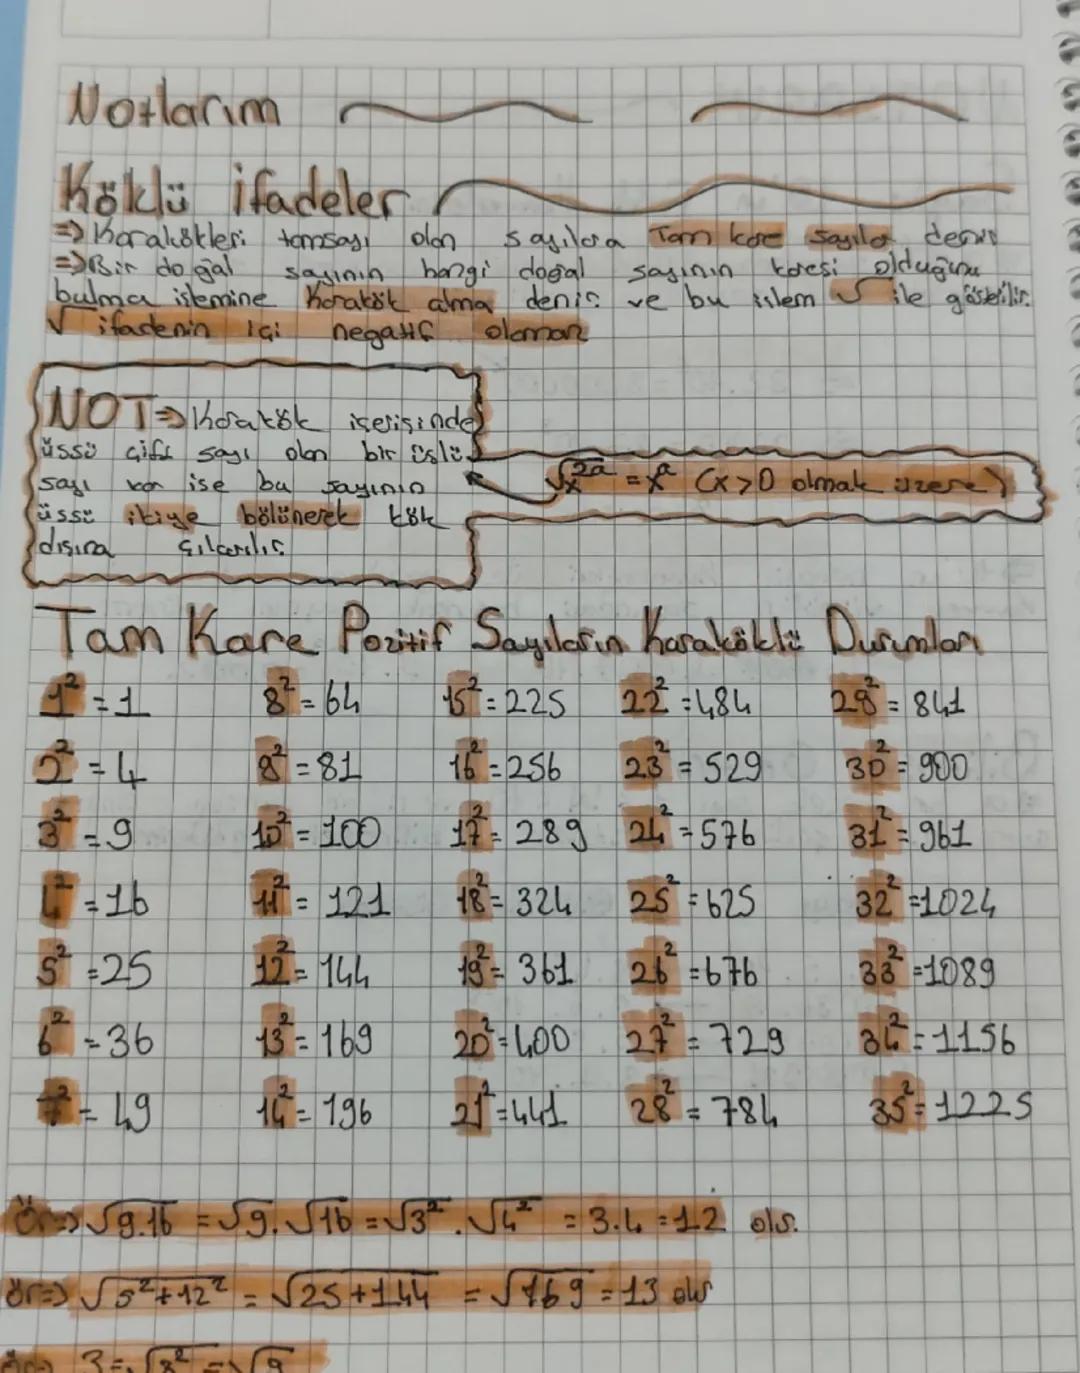 Notlarım
Köklü ifadeler
=> Karakökleri tamsayı olan sayılara Tam kare sayılar denir
=> Bir doğal sayının hangi doğal sayının karesi olduğunu
bulma işlemine Karakök alma denir ve bu işlem √ ile gösterilir.
√ ifadenin içi negatif olamaz
NOT=> Karakök içerisinde
üssü çift sayı olan bir üslü
sayı var ise bu sayının
üssü ikiye bölünerek kök
dışına çıkarılır.
√x^2a = x^a (x>0 olmak üzere)
Tam Kare Pozitif Sayıların Karaköklü Durumları
1² = 1 8² = 64 15² = 225 22² = 484 29² = 841
2² = 4 9² = 81 16² = 256 23² = 529 30² = 900
3² = 9 10² = 100 17² = 289 24² = 576 31² = 961
4² = 16 11² = 121 18² = 324 25² = 625 32² = 1024
5² = 25 12² = 144 19² = 361 26² = 676 33² = 1089
6² = 36 13² = 169 20² = 400 27² = 729 34² = 1156
7² = 49 14² = 196 21² = 441 28² = 784 35² = 1225
ör=> √9.16 = √9.√16 = √3².√4² = 3.4 = 12 olr.
ör=> √5²+12² = √25+144 = √169 = 13 olr
ör=> 3 = √3² => √9